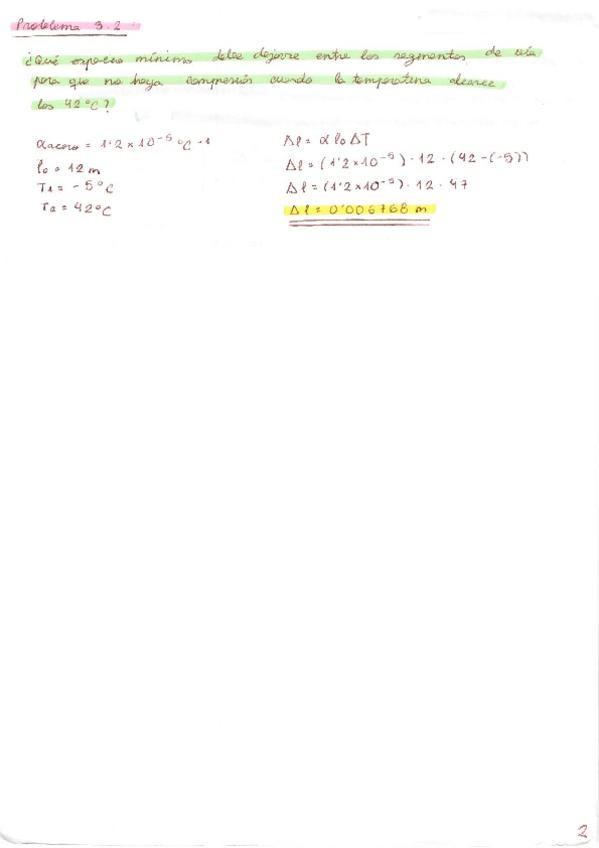 Problema 3.2
¿Qué espacio mínimo debe dejarse entre los segmentos de vía
para que no haya compresión cuando la temperatura alcance
los 42°C?
α acero = 1'2 x 10⁻⁵ °C⁻¹
l₀ = 12 m
T₁ = -5°C
T₂ = 42°C
Δl = α l₀ ΔT
Δl = (1'2 x 10⁻⁵) · 12 · (42 - (-5))
Δl = (1'2 x 10⁻⁵) · 12 · 47
Δl = 0'006768 m
2